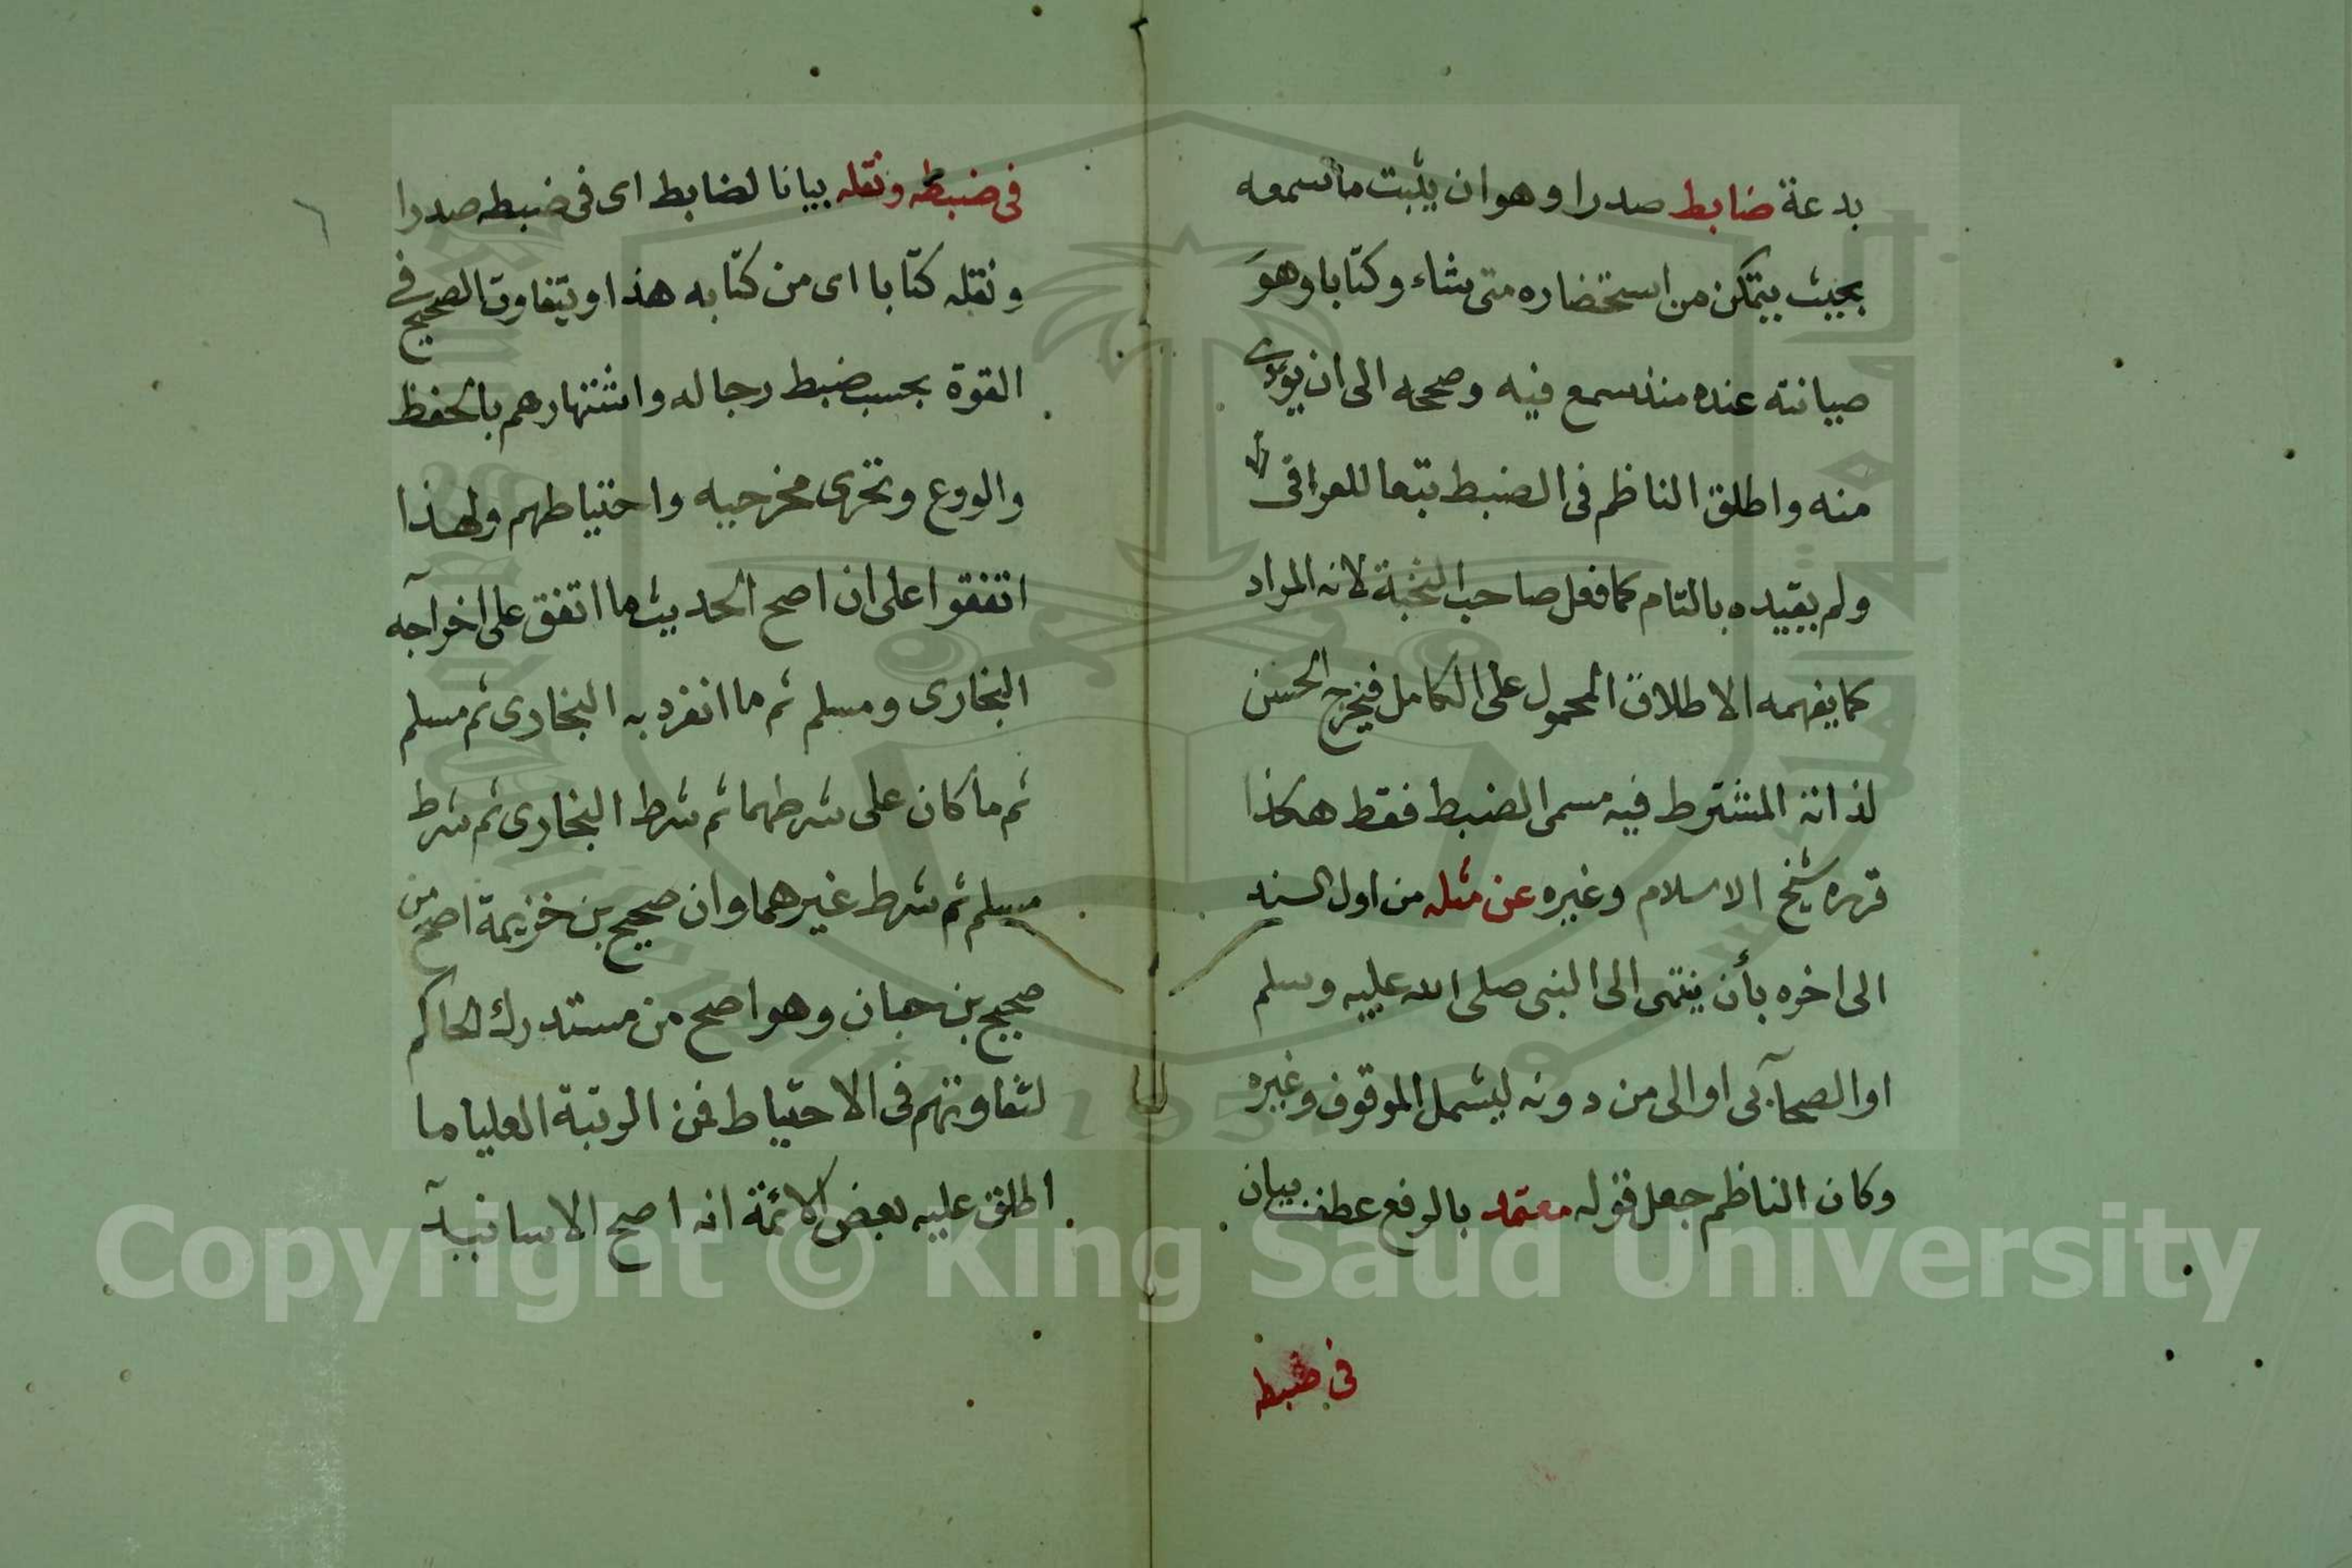 بدعة ضابط صدرا وهو ان يثبت ما سمعه
بحيث يتمكن من استحضاره متى شاء وكتابا وهو
صيانته عنده منذ سمع فيه وصححه الى ان يودى
منه واطلق الناظم فى الضبط تبعا للعراقى
ولم يقيده بالتام كما فعل صاحب النخبة لانه المراد
كما يفهمه الاطلاق المحمول على الكامل فيخرج الحسن
لذاته المشترط فيه مسمى الضبط فقط هكذا
قرره شيخ الاسلام وغيره عن مثله من اول السند
الى اخره بأن ينتهى الى النبى صلى الله عليه وسلم
او الصحابى او الى من دونه ليشمل الموقوف وغيره
وكان الناظم جعل قوله معتمد بالرفع عطف بيان
فى ضبطه
فى ضبطه ونقله بيانا لضابط اى فى ضبطه صدرا
ونقله كتابا اى من كتابه هذا ويتفاوت الصحيح فى
القوة بحسب ضبط رجاله واشتهارهم بالحفظ
والورع وتحرى مخرجيه واحتياطهم ولهذا
اتفقوا على ان اصح الحديث ما اتفق على اخراجه
البخارى ومسلم ثم ما انفرد به البخارى ثم مسلم
ثم ما كان على شرطهما ثم شرط البخارى ثم شرط
مسلم ثم شرط غيرهما وان صحيح بن خزيمة اصح من
صحيح بن حبان وهو اصح من مستدرك الحاكم
لتفاوتهم فى الاحتياط فمن الرتبة العليا ما
اطلق عليه بعض الائمة انه اصح الاسانيد
Copyright © King Saud University
1957